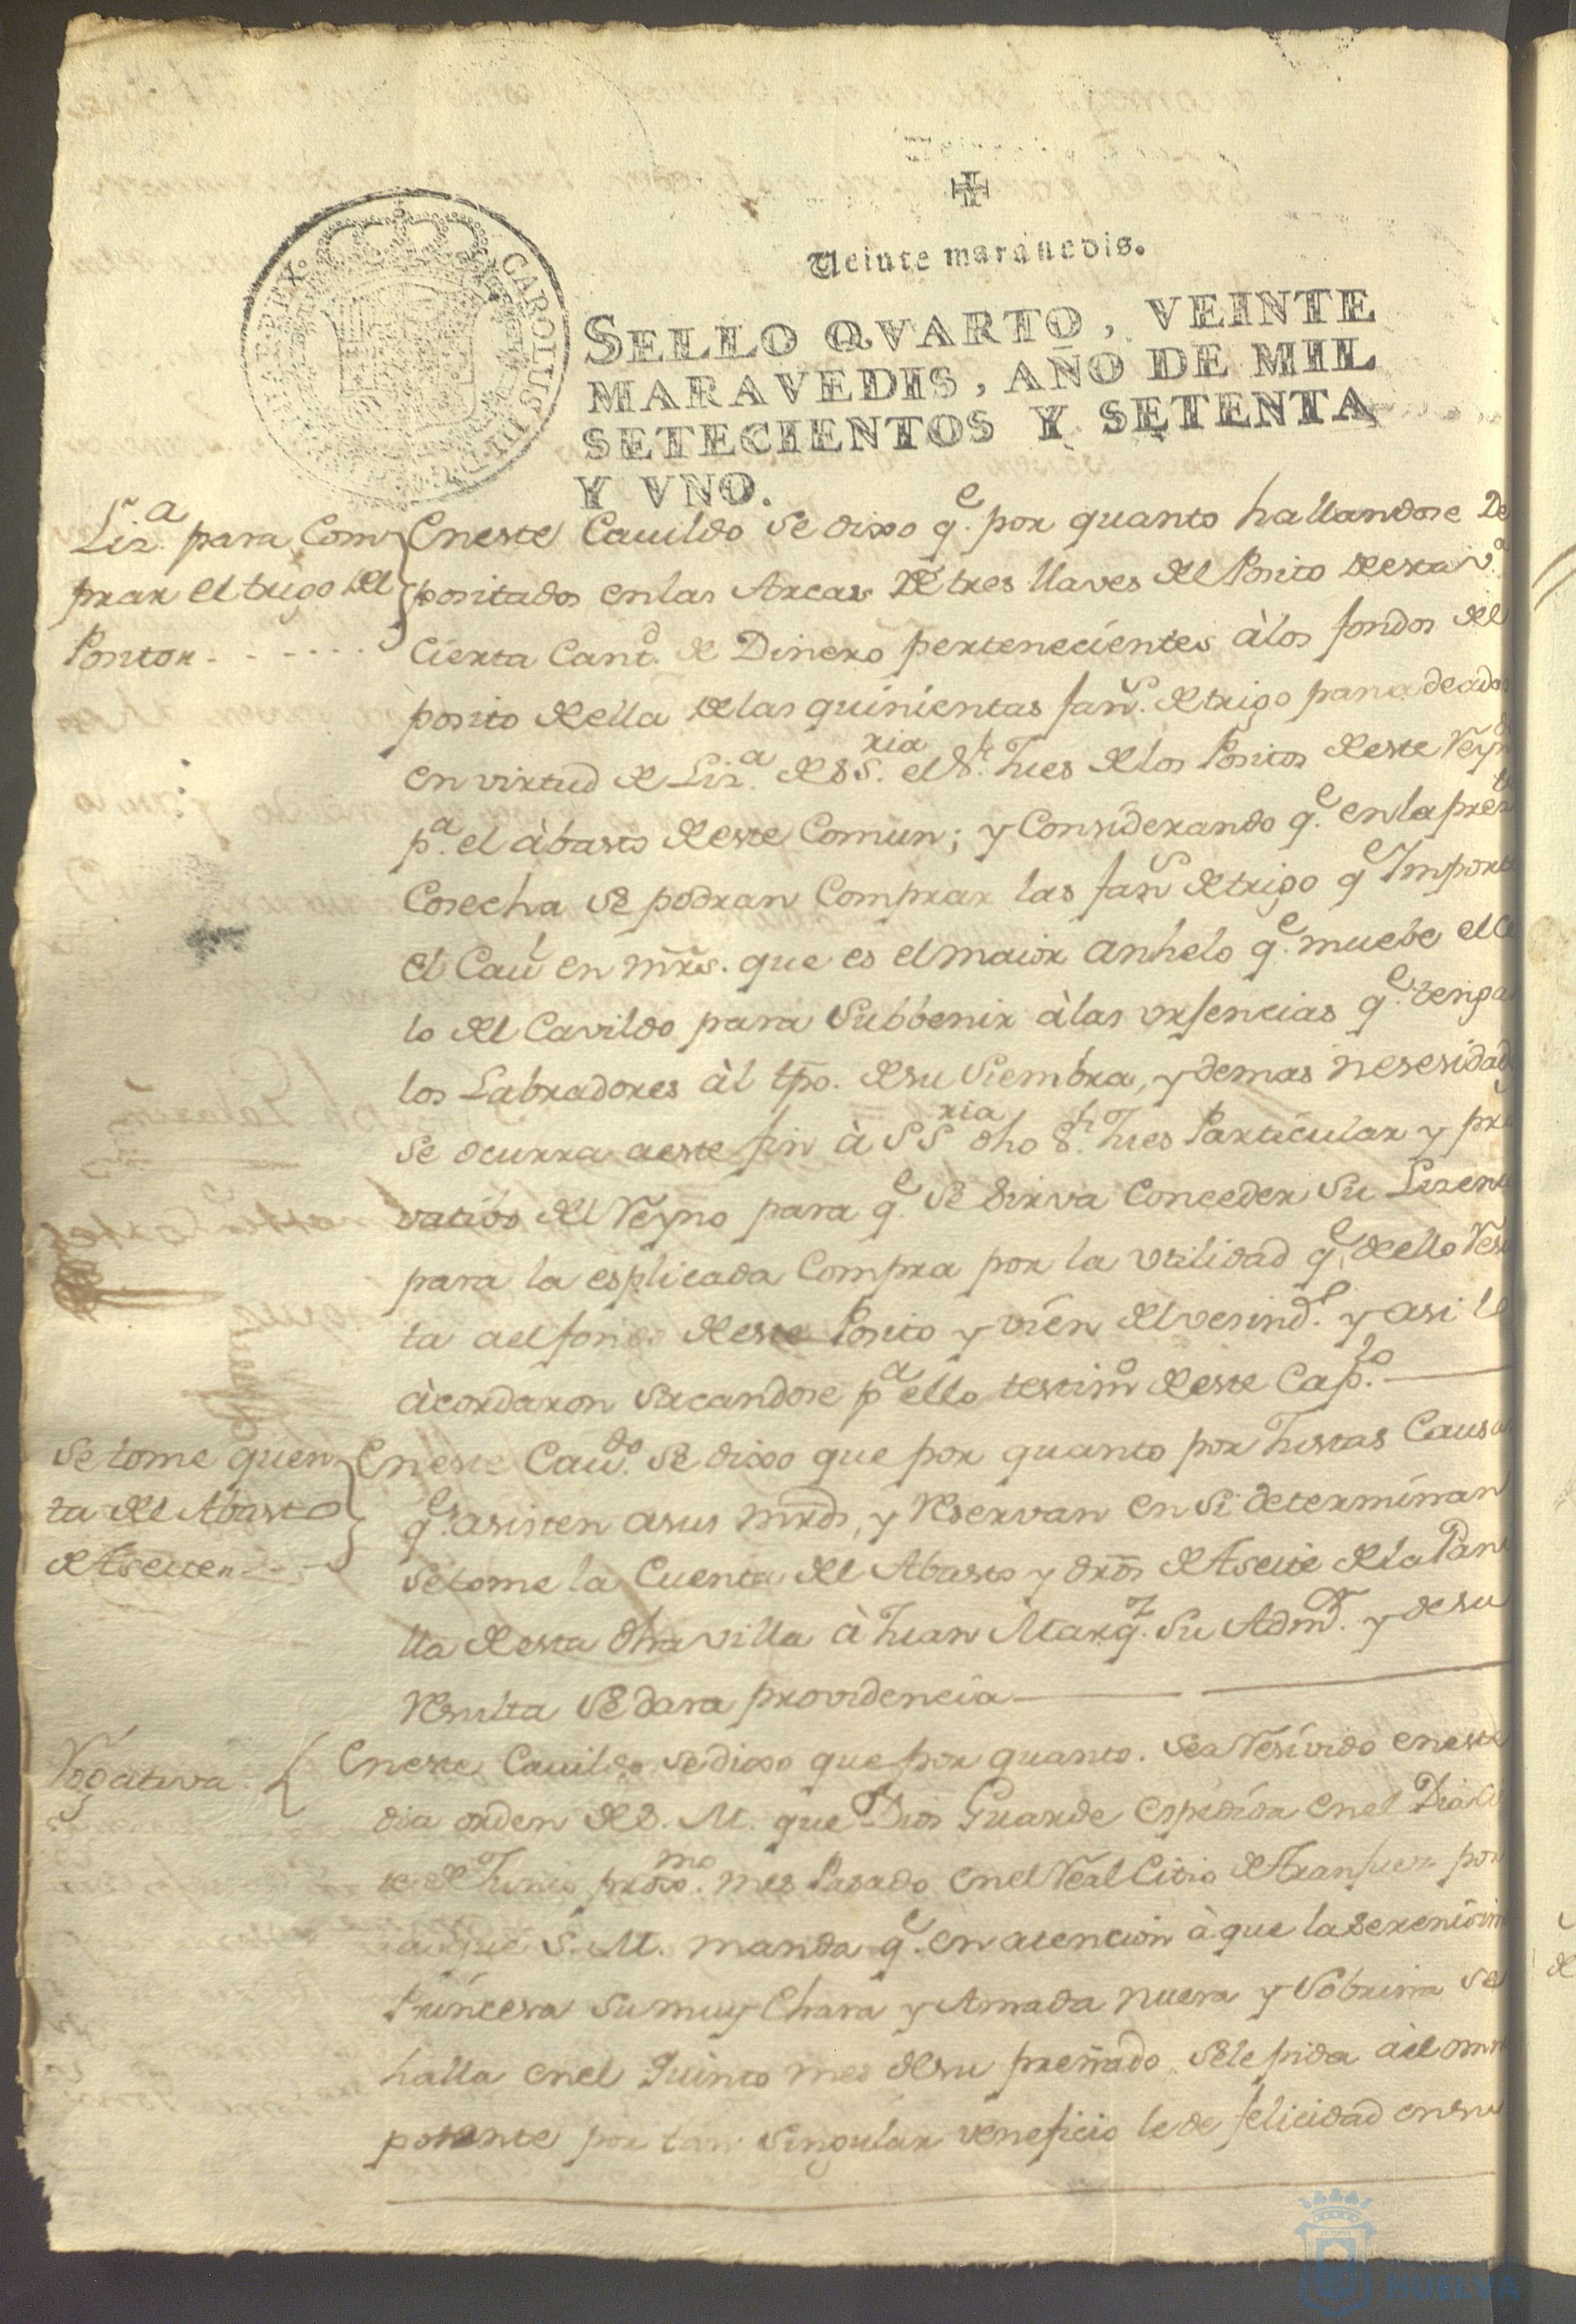 Veinte maravedis.
CAROLUS III D G HISPANIAR REX
SELLO QVARTO, VEINTE
MARAVEDIS, AÑO DE MIL
SETECIENTOS Y SETENTA
Y VNO.
Liz.ª para Com
prar el trigo del
Positor
En este Cauildo se dixo q.e por quanto hallandose De
positados en las Arcas de tres llaves del Posito de esta v.ª
Cierta Cant.d de Dinero pertenecientes à los fondos del
posito de ella de las quinientas fan.s de trigo panadeadas
en virtud de Liz.ª de S S.ria el S.r Jues de los Positos de este Reyno
p.ª el àbasto de este Comun; y Considerando q.e en la pres.te
Cosecha se podran Comprar las fan.s de trigo q.e Importe
el Cau.l en mrs. que es el maior anhelo q.e muebe el ce
lo del Cavildo para Subbenir à las vrsencias q.e tengan
los Labradores àl tpo. de su Siembra, y demas nesesidades
se ocurra a este fin à S S.ria dho S.r Jues Particular y pri
vatibo del Reyno para q.e Se Sirva Conceder Su Lizencia
para la esplicada Compra por la vtilidad q.e de ello Resul
ta a el fondo de este Posito y vien del vesind.e y asi lo
àcordaron Sacandose p.ª ello testim.o de este Cap.lo
Se tome quen
ta del Abasto
de Aseite
En este Cau.do Se dixo que por quanto por Justas Causas
q.e asisten a sus mrds, y Reservan en Si determinan
Se tome la Cuenta del Abasto y dros de Aseite de la Pani
lla de esta dha villa à Juan Marq.z Su Adm.or y de su
Resulta Se dara providencia
Rogativa
En este Cauildo se dixo que por quanto Se a Resivido en este
dia orden de S. M. que Dios Guarde espedida en el Dia
de Junio prox.mo mes Pasado en el Real Citio de Aranjuez por
S. M. manda q.e en atencion à que la Serenisima
Princesa su muy Chara y Amada nuera y Sobrina Se
halla en el Quinto mes de su preñado Se le pida à el omni
potente por tan Singular veneficio le de felicidad en su
HUELVA